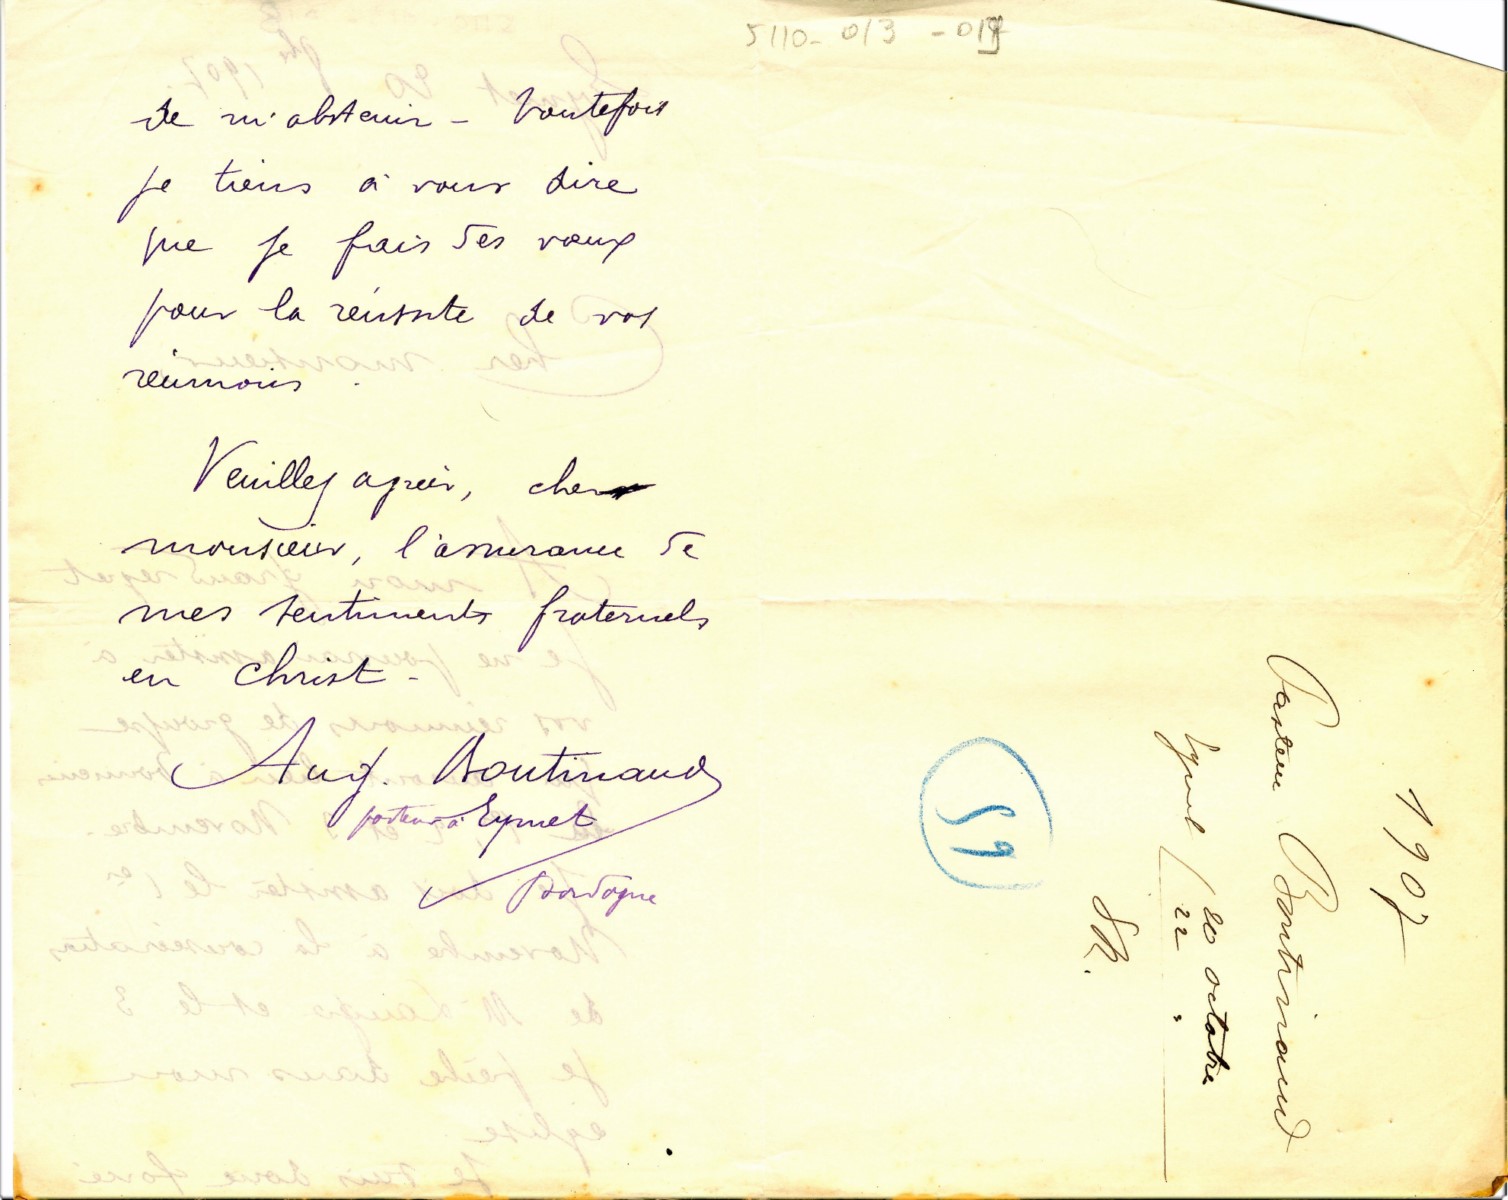 5110-013-019
de m'abstenir - toutefois
je tiens à vous dire
que je fais des vœux
pour la réussite de vos
réunions.
Veuillez agréer, cher
monsieur, l'assurance de
mes sentiments fraternels
en Christ -
Aug. Boutinaud
pasteur à Eymet
Dordogne
1907
Pasteur Boutinaud
Eymet / 20 octobre
22 "
SR.
59